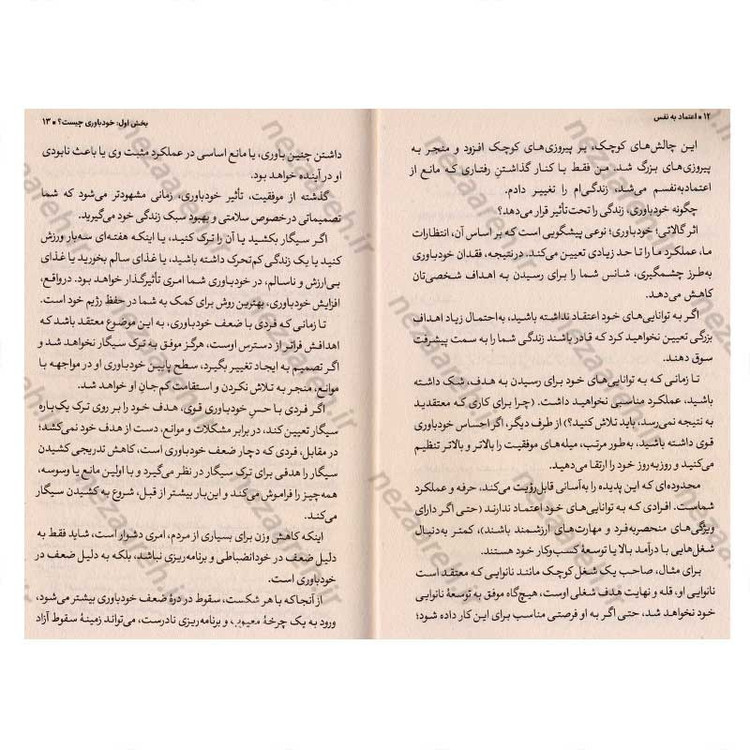 ۱۲ * اعتماد به نفس
این چالش‌های کوچک، بر پیروزی‌های کوچک افزود و منجر به
پیروزی‌های بزرگ شد. من فقط با کنار گذاشتنِ رفتاری که مانع از
اعتمادبه‌نفسم می‌شد، زندگی‌ام را تغییر دادم.
چگونه خودباوری، زندگی را تحت‌تأثیر قرار می‌دهد؟
اثر گالاتی؛ خودباوری؛ نوعی پیشگویی است که بر اساس آن، انتظارات
ما، عملکرد ما را تا حد زیادی تعیین می‌کند. درنتیجه، فقدان خودباوری
به‌طرز چشمگیری، شانس شما را برای رسیدن به اهداف شخصی‌تان
کاهش می‌دهد.
اگر به توانایی‌های خود اعتقاد نداشته باشید، به‌احتمال زیاد اهداف
بزرگی تعیین نخواهید کرد که قادر باشند زندگی شما را به سمت پیشرفت
سوق دهند.
تا زمانی که به توانایی‌های خود برای رسیدن به هدف، شک داشته
باشید، عملکرد مناسبی نخواهید داشت. (چرا برای کاری که معتقدید
به نتیجه نمی‌رسد، باید تلاش کنید؟) از طرف دیگر، اگر احساس خودباوری
قوی داشته باشید، به‌طور مرتب، میله‌های موفقیت را بالاتر و بالاتر تنظیم
می‌کنید و روزبه‌روز خود را ارتقا می‌دهید.
محدوده‌ای که این پدیده را به‌آسانی قابل‌رؤیت می‌کند، حرفه و عملکرد
شماست. افرادی که به توانایی‌های خود اعتماد ندارند (حتی اگر دارای
ویژگی‌های منحصربه‌فرد و مهارت‌های ارزشمند باشند)، کمتر به‌دنبال
شغل‌هایی با درآمد بالا یا توسعهٔ کسب‌وکار خود هستند.
برای مثال، صاحب یک شغل کوچک مانند نانوایی که معتقد است
نانوایی او، قله و نهایت هدف شغلی اوست، هیچ‌گاه موفق به توسعهٔ نانوایی
خود نخواهد شد، حتی اگر به او فرصتی مناسب برای این کار داده شود؛
بخش اول: خودباوری چیست؟ * ۱۳
داشتن چنین باوری، یا مانع اساسی در عملکرد مثبت وی یا باعث نابودی
او در آینده خواهد بود.
گذشته از موفقیت، تأثیر خودباوری، زمانی مشهودتر می‌شود که شما
تصمیماتی درخصوص سلامتی و بهبود سبک زندگی خود می‌گیرید.
اگر سیگار بکشید یا آن را ترک کنید، یا اینکه هفته‌ای سه‌بار ورزش
کنید یا یک زندگی کم‌تحرک داشته باشید، یا غذای سالم بخورید یا غذای
بی‌ارزش و ناسالم، در خودباوری شما امری تأثیرگذار خواهد بود. درواقع،
افزایش خودباوری، بهترین روش برای کمک به شما در حفظ رژیم خود است.
تا زمانی که فردی با ضعف خودباوری، به این موضوع معتقد باشد که
اهدافش فراتر از دسترس اوست، هرگز موفق به ترک سیگار نخواهد شد و
اگر تصمیم به ایجاد تغییر بگیرد، سطح پایین خودباوری او در مواجهه با
موانع، منجر به تلاش نکردن و استقامت کم‌جانِ او خواهد شد.
اگر فردی با حسِ خودباوری قوی، هدف خود را بر روی ترک یک‌باره
سیگار تعیین کند، در برابر مشکلات و موانع، دست از هدف خود نمی‌کشد؛
در مقابل، فردی که دچار ضعف خودباوری است، کاهش تدریجی کشیدن
سیگار را هدفی برای ترک سیگار در نظر می‌گیرد و با اولین مانع یا وسوسه،
همه‌چیز را فراموش می‌کند و این‌بار بیشتر از قبل، شروع به کشیدن سیگار
می‌کند.
اینکه کاهش وزن برای بسیاری از مردم، امری دشوار است، شاید فقط به
دلیل ضعف در خودانضباطی و برنامه‌ریزی نباشد، بلکه به دلیل ضعف در
خودباوری است.
از آنجاکه با هر شکست، سقوط در درهٔ ضعف خودباوری بیشتر می‌شود،
ورود به یک چرخهٔ معیوب و برنامه‌ریزی نادرست، می‌تواند زمینهٔ سقوط آزاد
nezaareh.ir
nezaareh.ir
nezaareh.ir
nezaareh.ir
nezaareh.ir
nezaareh.ir